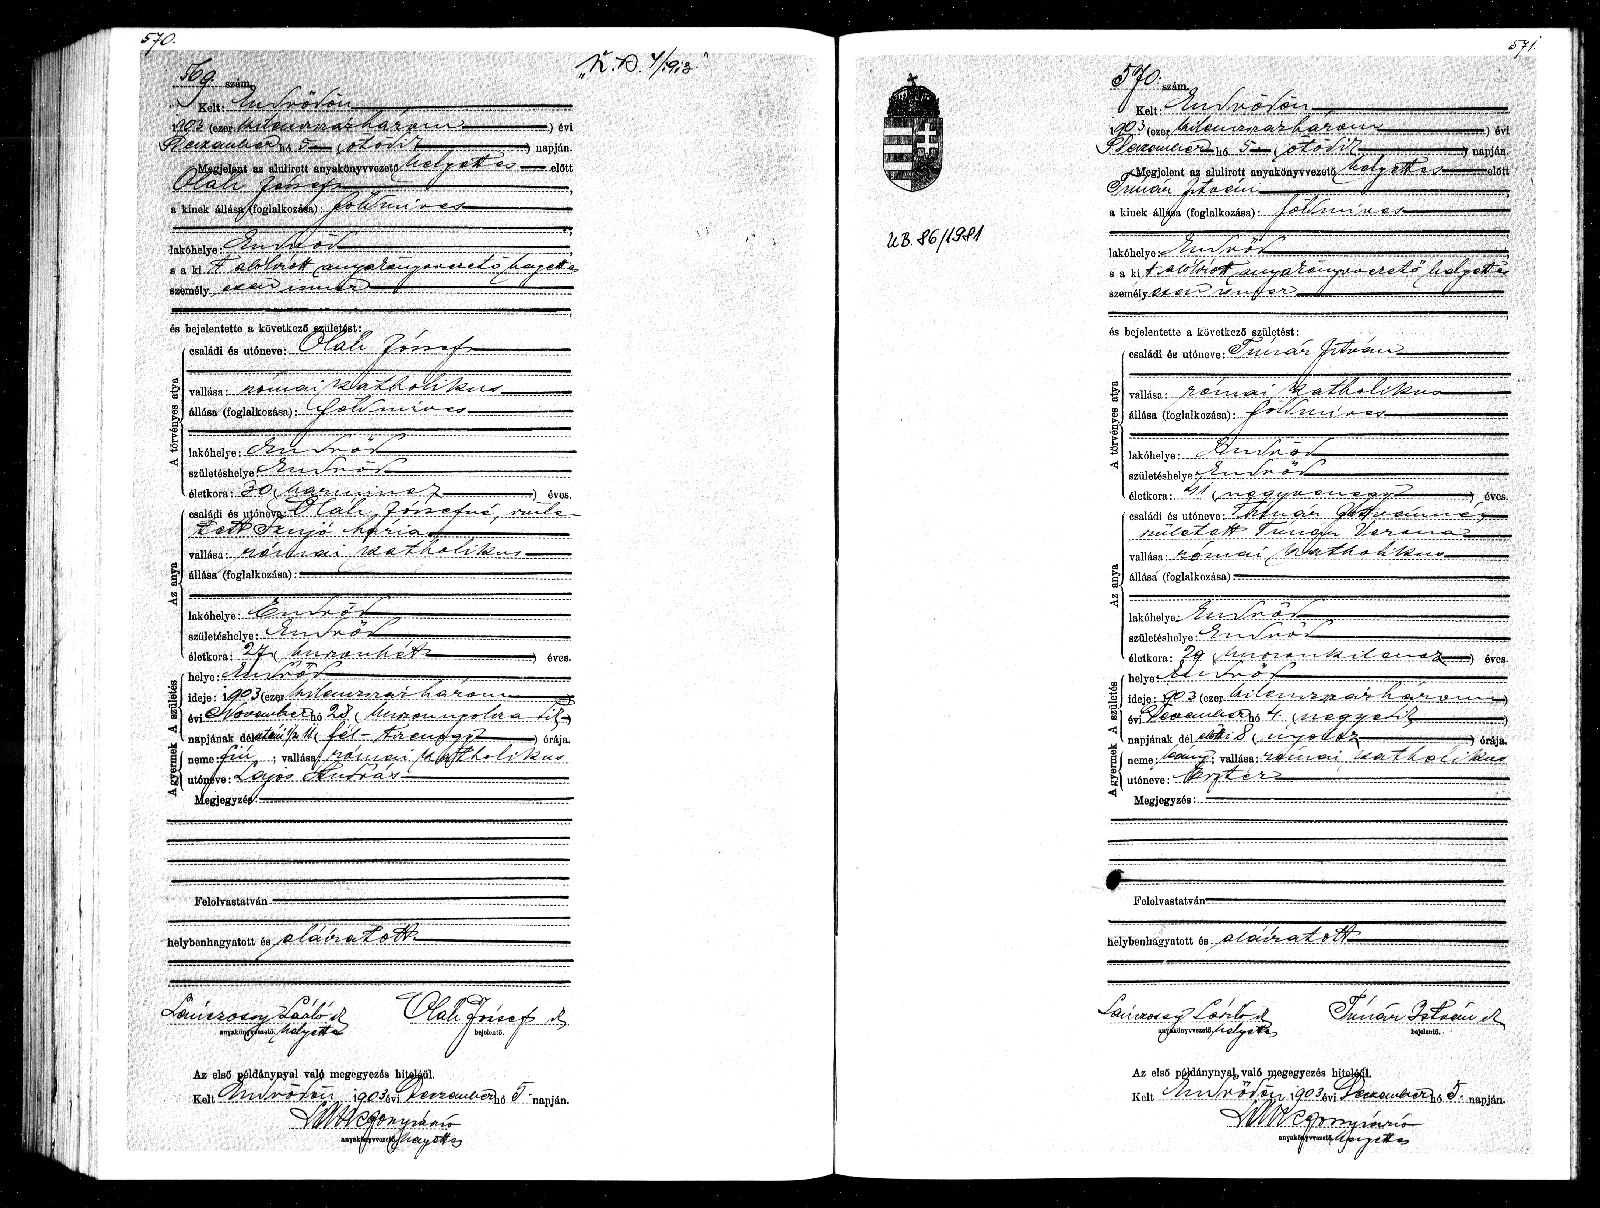 570.
569. szám.
Kelt: Endrődön
1903 (ezer kilenczszázhárom) évi
Deczember hó 5 (ötödik) napján.
Megjelent az alulirott anyakönyvvezető helyettes előtt
Oláh József
a kinek állása (foglalkozása): földmives
lakóhelye: Endrőd
s a ki t alólirott anyakönyvvezető helyettes
személy esen ismer
és bejelentette a következő születést:
A törvényes atya
családi és utóneve: Oláh József
vallása: római katholikus
állása (foglalkozása): földmives
lakóhelye: Endrőd
születéshelye: Endrőd
életkora: 30 (harmincz) éves.
Az anya
családi és utóneve: Oláh Józsefné, szüle-
tett Mária
vallása: római katholikus
állása (foglalkozása):
lakóhelye: Endrőd
születéshelye: Endrőd
életkora: 27 (huszonhét) éves.
A gyermek A születés
helye: Endrőd
ideje: 1903 (ezer kilenczszázhárom)
évi November hó 28 (huszonnyolcza dik)
napjának délutáni 1/2 11 (fél-tizenegy) órája.
neme: fiú; vallása: római katholikus
utóneve: Lajos András
Megjegyzés:
Felolvastatván
helybenhagyatott és aláiratott
Lánczossy László s.k. Oláh József s.k.
anyakönyvvezető helyettes bejelentő.
Az első példánynyal való megegyezés hiteléül.
Kelt Endrődön 1903 évi Deczember hó 5. napján.
anyakönyvvezető helyettes
571.
K.B. 86/1981
570. szám.
Kelt: Endrődön
1903 (ezer kilenczszázhárom) évi
Deczember hó 5 (ötödik) napján.
Megjelent az alulirott anyakönyvvezető helyettes előtt
Timár István
a kinek állása (foglalkozása): földmives
lakóhelye: Endrőd
s a ki t alólirott anyakönyvvezető helyettes
személy esen ismer
és bejelentette a következő születést:
A törvényes atya
családi és utóneve: Timár István
vallása: római katholikus
állása (foglalkozása): földmives
lakóhelye: Endrőd
születéshelye: Endrőd
életkora: 41 (negyvenegy) éves.
Az anya
családi és utóneve: Timár Istvánné,
született Verona
vallása: római katholikus
állása (foglalkozása)
lakóhelye: Endrőd
születéshelye: Endrőd
életkora: 29 (huszonkilencz) éves.
A gyermek A születés
helye: Endrőd
ideje: 1903 (ezer kilenczszázhárom)
évi Deczember hó 4 (negyedik)
napjának dél előtti 8 (nyolcz) órája.
neme: leány; vallása: római katholikus
utóneve: Eszter
Megjegyzés:
Felolvastatván
helybenhagyatott és aláiratott
Lánczossy László s.k. Timár István s.k.
anyakönyvvezető helyettes bejelentő.
Az első példánynyal való megegyezés hiteléül.
Kelt Endrődön 1903 évi Deczember hó 5. napján.
anyakönyvvezető helyettes